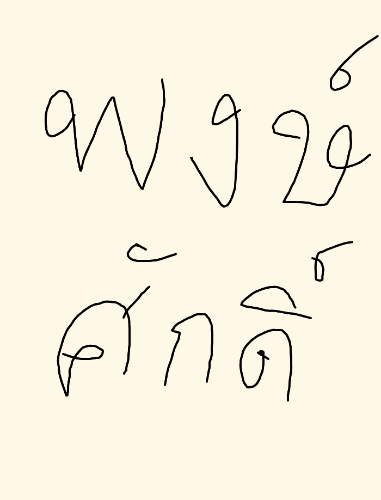 พงษ์
ศักดิ์